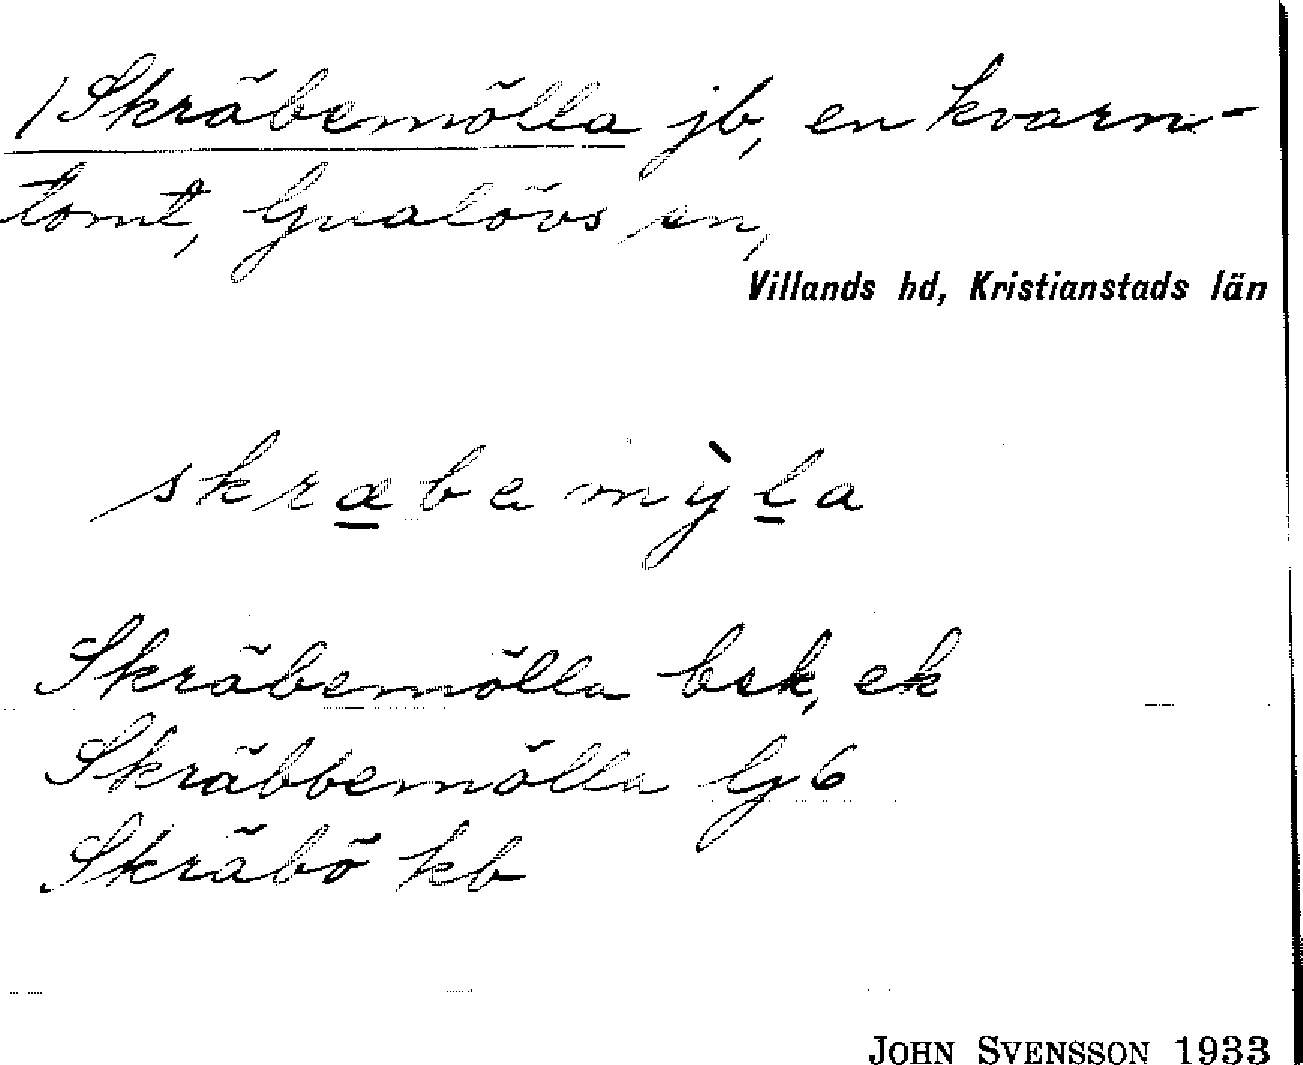 /Skräbemölla jb, en kvarn-
tomt, Gualövs sn,
Villands hd, Kristianstads län
skræbemỳla
Skräbemölla bsk, ek
Skräbbemölla Gj 6
Skräbö kb
JOHN SVENSSON 1933